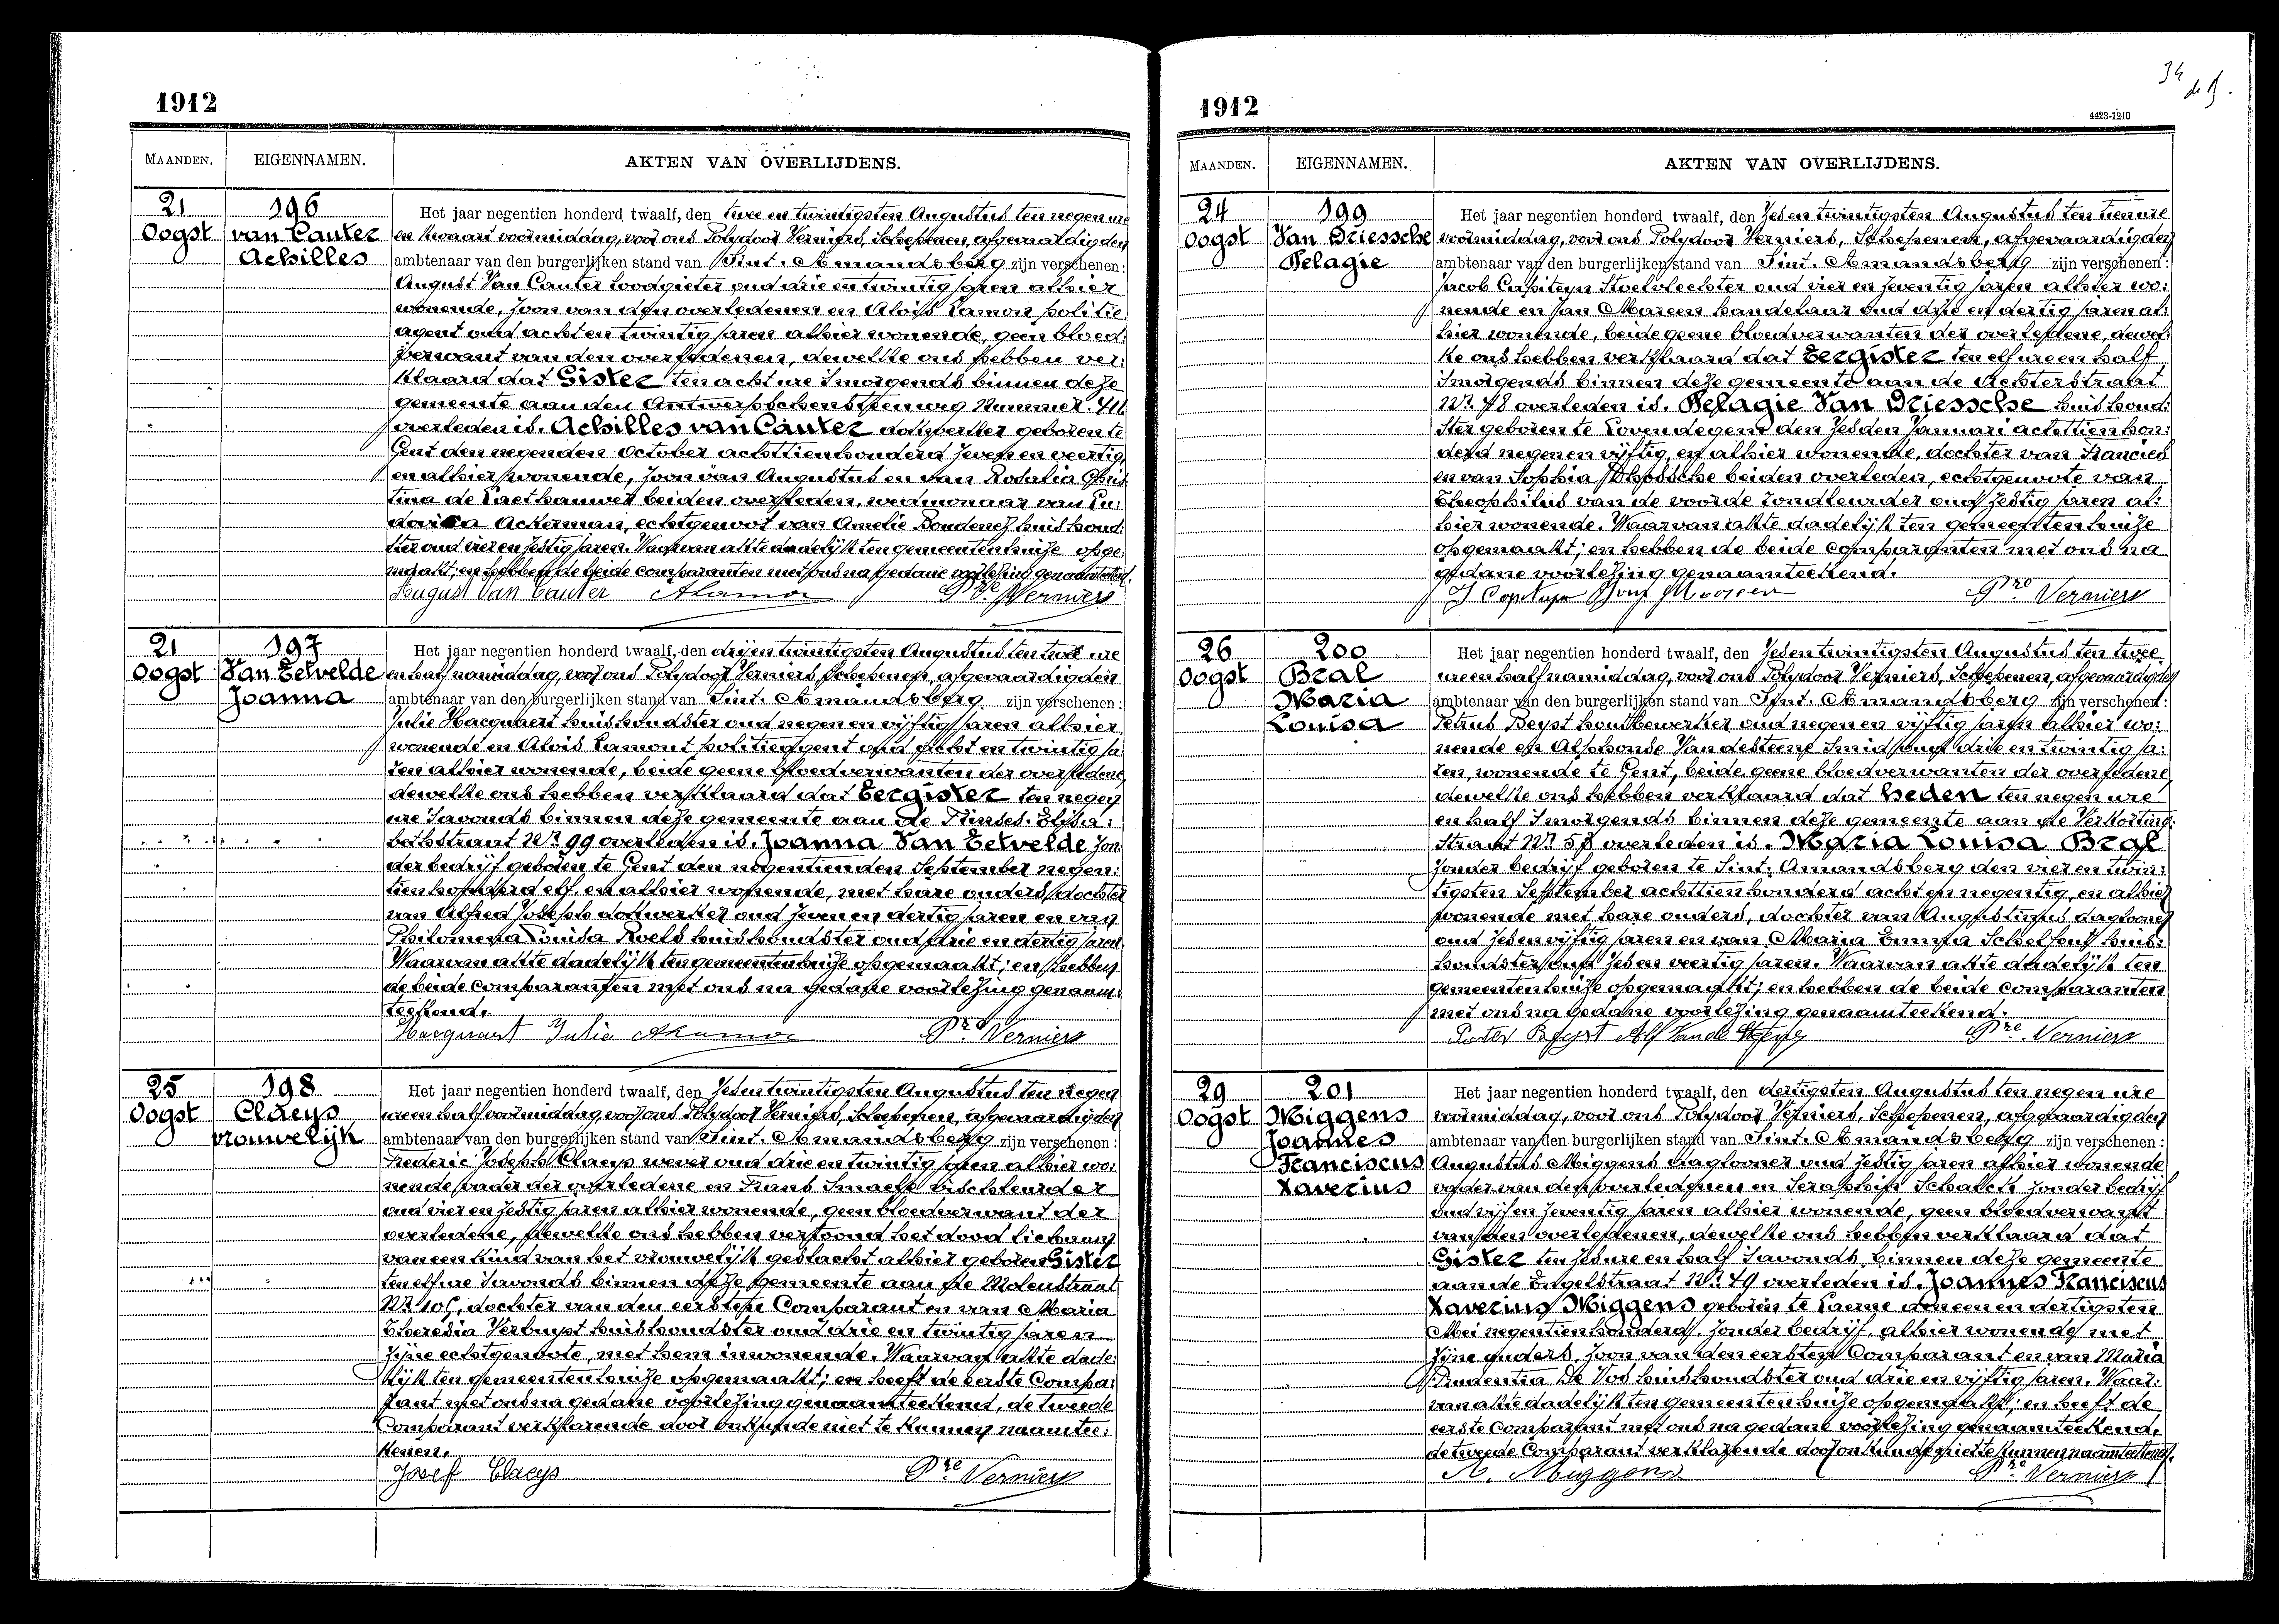 1912
MAANDEN.
EIGENNAMEN.
AKTEN VAN OVERLIJDENS.
21
Oogst
196
van Cauter
Achilles
Het jaar negentien honderd twaalf, den twee en twintigsten Augustus ten negen ure
en kwaart voormiddag, voor ons Polydoor Verniers, Schepenen, afgevaardigden
ambtenaar van den burgerlijken stand van Sint-Amandsberg zijn verschenen:
August Van Cauter loodgieter oud drie en twintig jaren alhier
wonende, zoon van den overledenen en Alois Lamon politie
agent oud acht en twintig jaren alhier wonende, geen bloed:
verwant van den overledenen, dewelke ons hebben ver:
klaard dat Gister ten acht ure 's morgends binnen deze
gemeente aan den Antwerpschensteenweg Nummer
overleden is. Achilles van Cauter dokwerker geboren te
Gent den negenden October achttienhonderd zeven en veertig,
en alhier wonende, zoon van Augustus en van Rosalia
de beiden overleden, weduwnaar van Lu:
Ackerman, echtgenoot van Amelie huishoud:
ster oud vier en zestig jaren. Waarvan akte dadelijk ten gemeentenhuize opge:
maakt; en hebben de beide comparanten met ons na gedane voorlezing genaamteekend.
August Van Cauter ALamon Pre Verniers
21
Oogst
197
Van Zelvelde
Joanna
Het jaar negentien honderd twaalf, den drij en twintigsten Augustus ten twee ure
en half namiddag, voor ons Polydoor Verniers, Schepenen, afgevaardigden
ambtenaar van den burgerlijken stand van Sint-Amandsberg zijn verschenen:
Julie Hacquaert huishoudster oud negen en vijftig jaren alhier
wonende en Alois Lamont politieagent oud acht en twintig ja:
ren alhier wonende, beide geene bloedverwanten der overledene,
dewelke ons hebben verklaard dat Eergister ten negen
ure 's avonds binnen deze gemeente aan de Prinses. Elisa:
bethstraat Nr. 99 overleden is. Joanna Van Zelvelde zon:
der bedrijf geboren te Gent den negentienden September negen:
tien honderd elf, en alhier wonende, met hare ouders, dochter
van Alfred Joseph dokwerker oud zeven en dertig jaren en van
Philomena Louisa Roels huishoudster oud drie en dertig jaren.
Waarvan akte dadelijk ten gemeentenhuize opgemaakt; en hebben
de beide comparanten met ons na gedane voorlezing genaam:
teekend.
Hacquaert Julie ALamon Pre Verniers
25
Oogst
198
Claeys
vrouwelijk
Het jaar negentien honderd twaalf, den zesen twintigsten Augustus ten negen
ure en half voormiddag, voor ons Polydoor Verniers, Schepenen, afgevaardigden
ambtenaar van den burgerlijken stand van Sint-Amandsberg zijn verschenen:
Frederic Joseph Claeys wever oud drie en twintig jaren alhier wo:
nende vader der overledene en Frans Smaelt vischleurder
oud vier en zestig jaren alhier wonende, geen bloedverwant der
overledene, dewelke ons hebben vertoond het dood lichaam
van een kind van het vrouwelijk geslacht alhier geboren Gister
ten elf ure 's avonds binnen deze gemeente aan de Molenstraat
dochter van den eersten Comparant en van Maria
Theresia Verbuyst huishoudster oud drie en twintig jaren
zijne echtgenoote, met hem inwonende. Waarvan akte dade:
lijk ten gemeentenhuize opgemaakt; en heeft de eerste Compa:
rant met ons na gedane voorlezing genaamteekend, de tweede
Comparant verklarende door onkunde niet te kunnen naamtee:
kenen.
Josef Claeys Pre Verniers
34
1912
4423-1240
MAANDEN.
EIGENNAMEN.
AKTEN VAN OVERLIJDENS.
24
Oogst
199
Van Driessche
Pelagie
Het jaar negentien honderd twaalf, den zesen twintigsten Augustus ten tien ure
voormiddag, voor ons Polydoor Verniers, Schepenen, afgevaardigden
ambtenaar van den burgerlijken stand van Sint-Amandsberg zijn verschenen:
Jacob Capiteyn Stoelvlechter oud vier en zeventig jaren alhier wo:
nende en Jan Moreen handelaar oud drie en dertig jaren al:
hier wonende, beide geene bloedverwanten der overledene, dewel:
ke ons hebben verklaard dat Eergister ten elf ure en half
's morgends binnen deze gemeente aan de Achterstraat
Nr. 78 overleden is. Pelagie Van Driessche huishoud:
ster geboren te Lovendegem den zesden Januari achttien hon:
derd negen en vijftig, en alhier wonende, dochter van Francies
en van Sophia beiden overleden, echtgenoote van
Theophilus van de voorde zandleurder oud zestig jaren al:
hier wonende. Waarvan akte dadelijk ten gemeentenhuize
opgemaakt; en hebben de beide comparanten met ons na
gedane voorlezing genaamteekend.
J Capiteyn Pre Verniers
26
Oogst
200
Bral
Maria
Louisa
Het jaar negentien honderd twaalf, den zesen twintigsten Augustus ten twee
ure en half namiddag, voor ons Polydoor Verniers, Schepenen, afgevaardigden
ambtenaar van den burgerlijken stand van Sint-Amandsberg zijn verschenen:
Petrus Beyst houtbewerker oud negen en vijftig jaren alhier wo:
nende en Alphonse Van de smid oud drie en twintig ja:
ren, wonende te Gent, beide geene bloedverwanten der overledene,
dewelke ons hebben verklaard dat heden ten negen ure
en half 's morgends binnen deze gemeente aan de Verkorting:
straat Nr. 57 overleden is. Maria Louisa Bral
zonder bedrijf geboren te Sint-Amandsberg den vier en twin:
tigsten September achttienhonderd acht en negentig, en alhier
wonende met hare ouders, dochter van Augustinus dagloner
oud zesen vijftig jaren en van Maria Schelfout huis:
houdster oud zesen veertig jaren. Waarvan akte dadelijk ten
gemeentenhuize opgemaakt; en hebben de beide comparanten
met ons na gedane voorlezing genaamteekend.
Beyst Pre Verniers
29
Oogst
201
Miggens
Joannes
Franciscus
Xaverius
Het jaar negentien honderd twaalf, den dertigsten Augustus ten negen ure
voormiddag, voor ons Polydoor Verniers, Schepenen, afgevaardigden
ambtenaar van den burgerlijken stand van Sint-Amandsberg zijn verschenen:
Augustus Miggens dagloner oud zestig jaren alhier wonende
vader van den overledenen en Seraphin Schalck zonder bedrijf
oud vijf en zeventig jaren alhier wonende, geen bloedverwant
van den overledenen, dewelke ons hebben verklaard dat
Gister ten zes ure en half 's avonds, binnen deze gemeente
aan de Engelstraat Nr. 49 overleden is. Joannes Franciscus
Xaverius Miggens geboren te Laerne den een en dertigsten
Mei negentien honderd, zonder bedrijf, alhier wonende met
zijne ouders, zoon van den eersten Comparant en van Maria
Prudentia De Vos huishoudster oud drie en vijftig jaren. Waar:
van akte dadelijk ten gemeentenhuize opgemaakt; en heeft de
eerste Comparant met ons na gedane voorlezing genaamteekend,
de tweede Comparant verklarende door onkunde niet te kunnen naamteekenen.
A. Miggens Pre Verniers